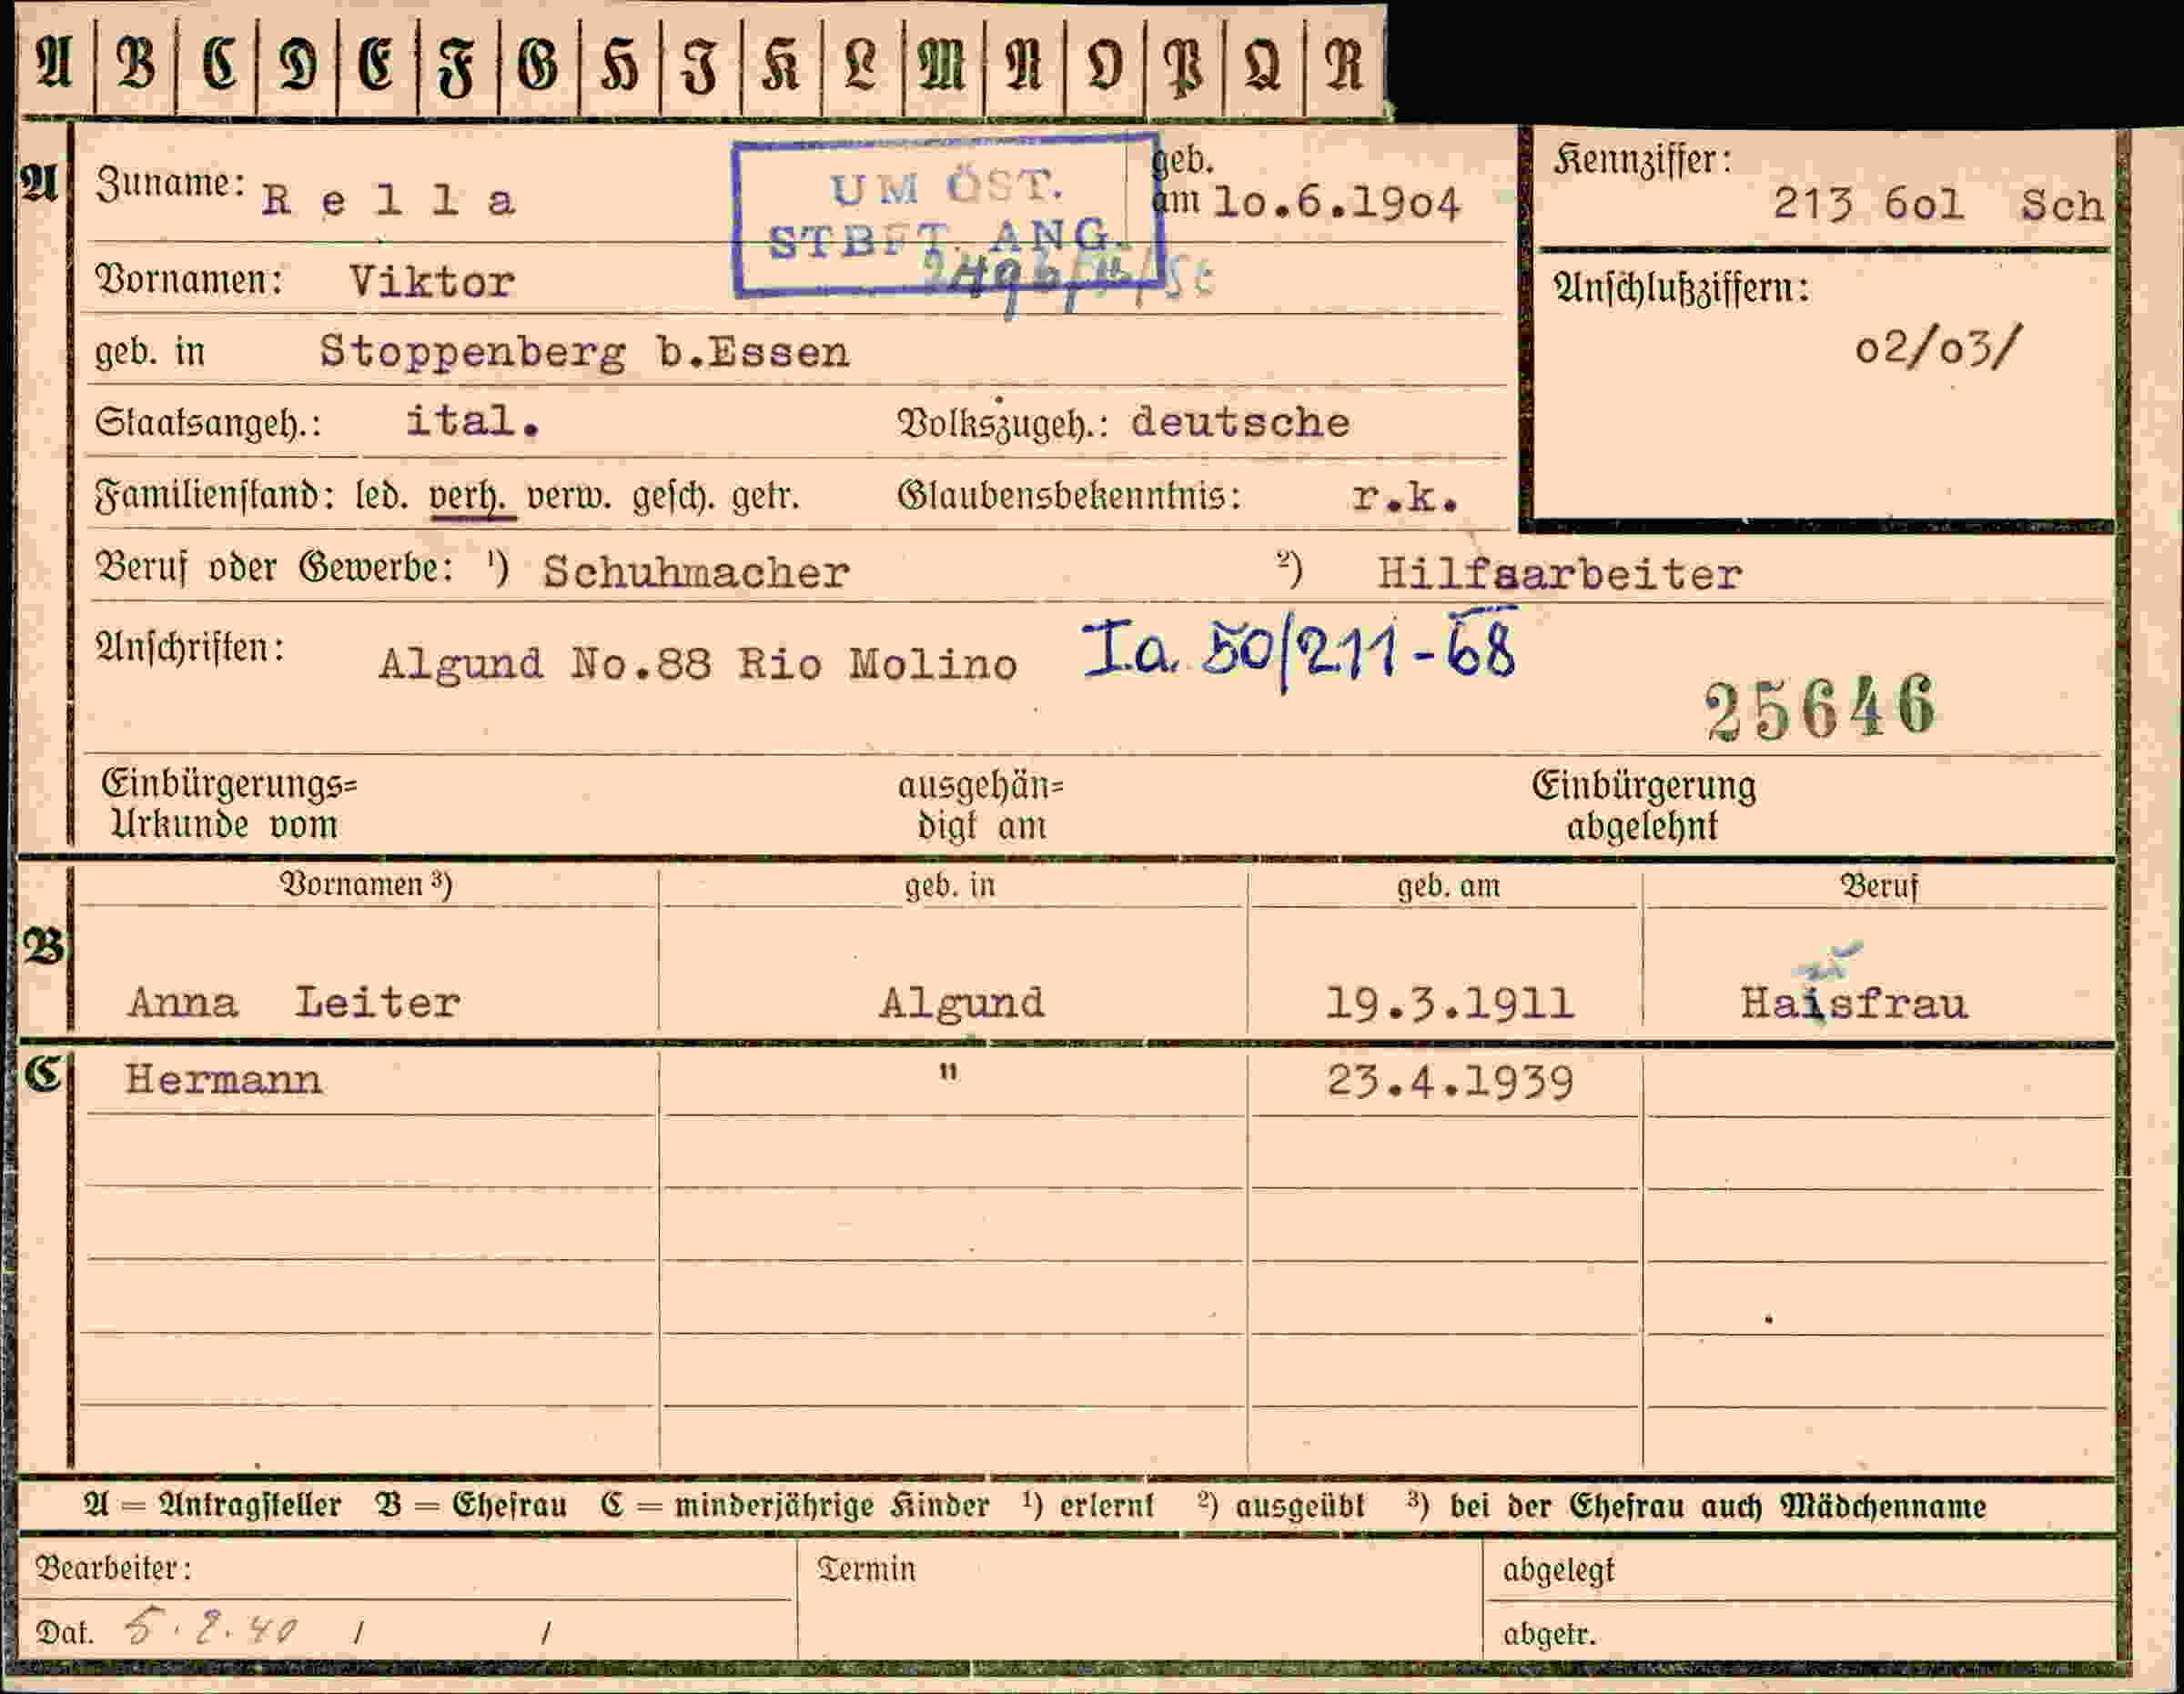 A B C D E F G H I K L M N O P Q R
A Zuname: Rella geb. am 10.6.1904 Kennziffer: 213 6o1 Sch
UM ÖST.
STBFT. ANG.
Vornamen: Viktor
Anschlußziffern:
o2/o3/
geb. in Stoppenberg b.Essen
Staatsangeh.: ital. Volkszugeh.: deutsche
Familienstand: led. verh. verw. gesch. getr. Glaubensbekenntnis: r.k.
Beruf oder Gewerbe: ¹) Schuhmacher ²) Hilfsarbeiter
Anschriften: Algund No.88 Rio Molino I.a. 50/211-68
25646
Einbürgerungs= ausgehän= Einbürgerung
Urkunde vom digt am abgelehnt
Vornamen ³) geb. in geb. am Beruf
B Anna Leiter Algund 19.3.1911 Haisfrau
C Hermann " 23.4.1939
A = Antragsteller B = Ehefrau C = minderjährige Kinder ¹) erlernt ²) ausgeübt ³) bei der Ehefrau auch Mädchenname
Bearbeiter: Termin abgelegt
Dat. 5.2.40 / / abgetr.